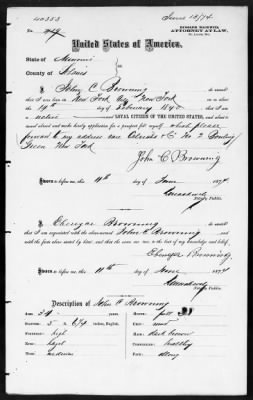 40353
June 15/74.
ATTORNEY AT LAW,
United States of America.
State of Missouri
County of St Louis
I, John C Browning do swear
that I was born in New York City New York on
14th day of February 1840
native LOYAL CITIZEN OF THE UNITED STATES, and
about to travel abroad and hereby make application for a passport for myself which please
forward to my address care Adriance & Co No 2 Bowling
Green New York
John C Browning
Sworn to before me, this 11th day of June 1874
Notary Public.
I, Ebenezar Browning do swear
that I am acquainted with the above-named John C. Browning and
with the facts above stated by him, and that the same are true to the best of my knowledge and belief.
Ebenezer Browning
Sworn to before me, this 11th day of June 1874
Notary Public.
Description of John C Browning
Age: 34
Stature: 5 6 3/4 inches, English.
Forehead: high
Eyes: hazel
Nose: medium
Mouth: full
Chin: small
Hair: dark brown
Complexion: healthy
Face: oblong